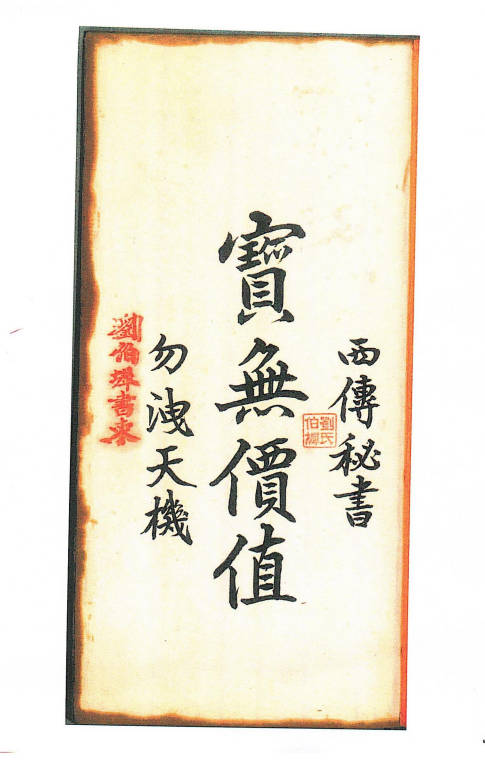 西傳秘書
寶無價值
劉氏
伯
勿洩天機
劉伯墀書束